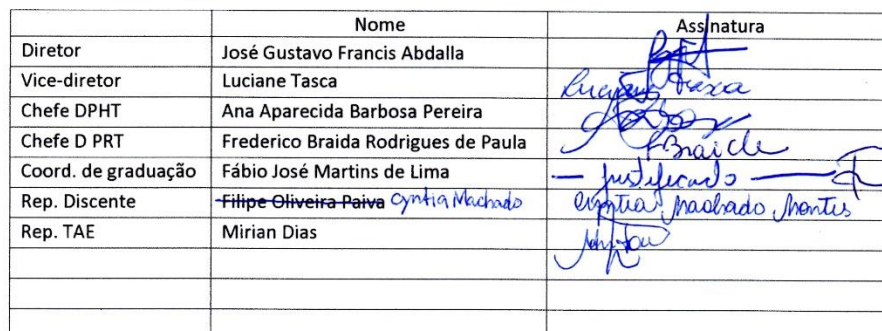 Nome Assinatura
Diretor José Gustavo Francis Abdalla
Vice-diretor Luciane Tasca Luciane Tasca
Chefe DPHT Ana Aparecida Barbosa Pereira
Chefe D PRT Frederico Braida Rodrigues de Paula FBraida
Coord. de graduação Fábio José Martins de Lima — Justificado —
Rep. Discente Filipe Oliveira Paiva Cyntia Machado Cyntia Machado
Rep. TAE Mirian Dias